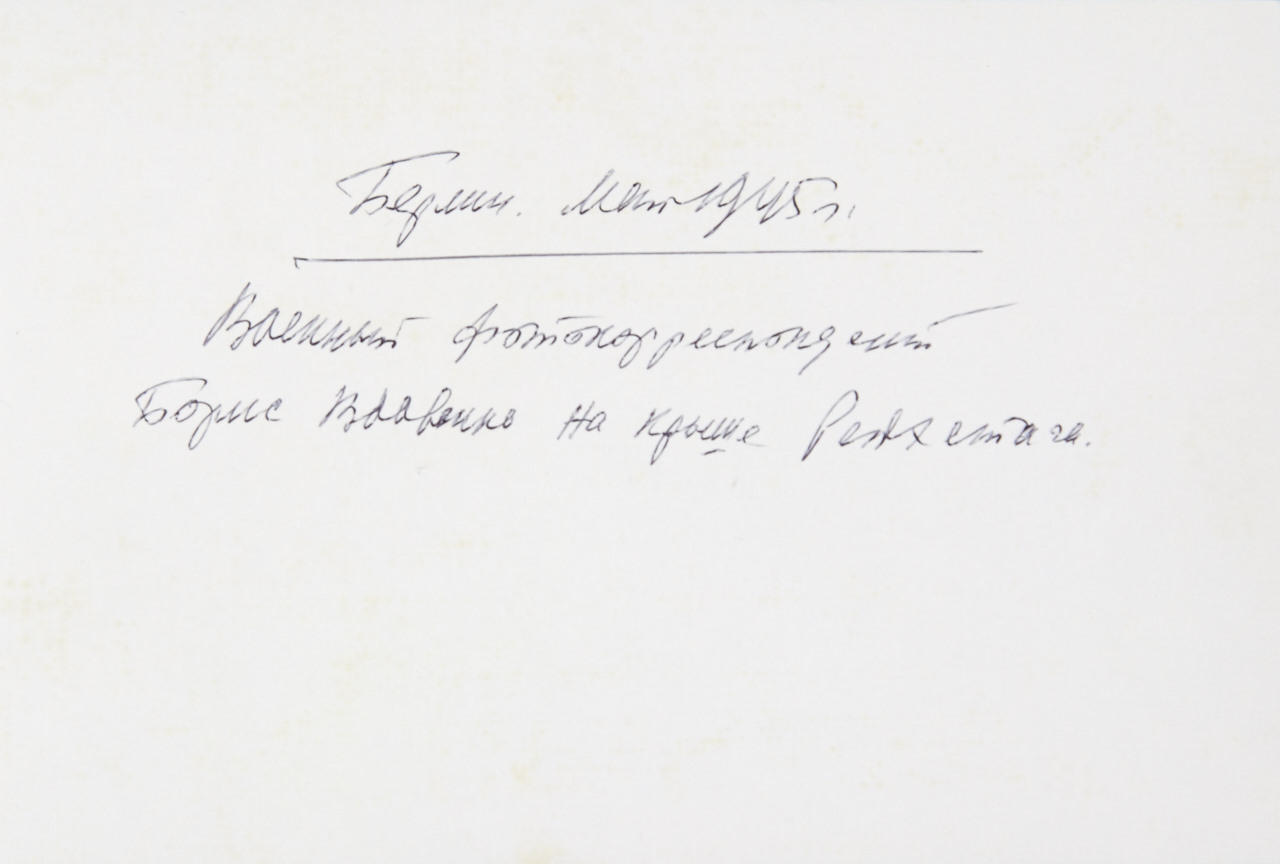 Берлин. Май 1945 г.
Военный фотокорреспондент
Борис Вдовенко на крыше Рейхстага.